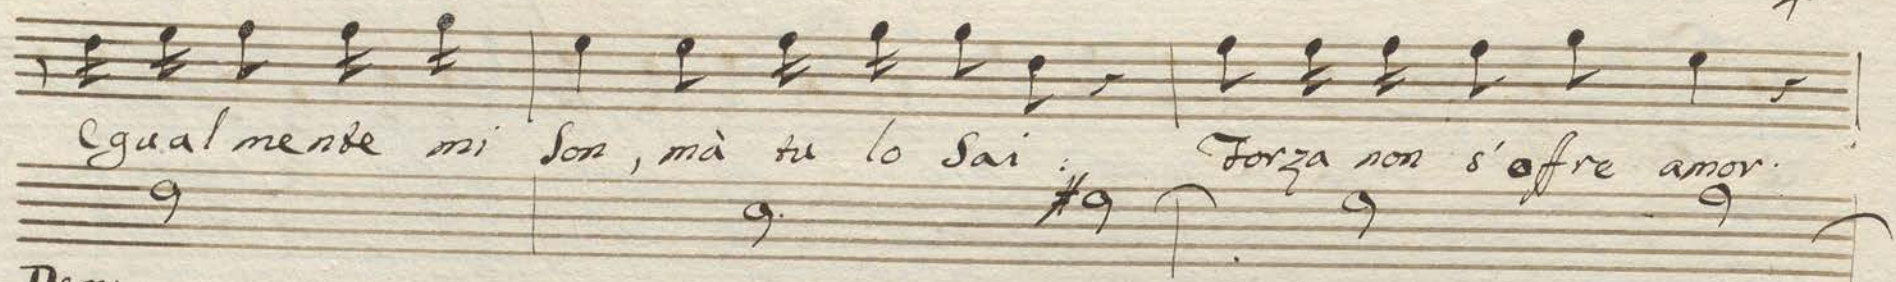 Egualmente mi Son, mà tu lo Sai: Forza non s'ofre amor.